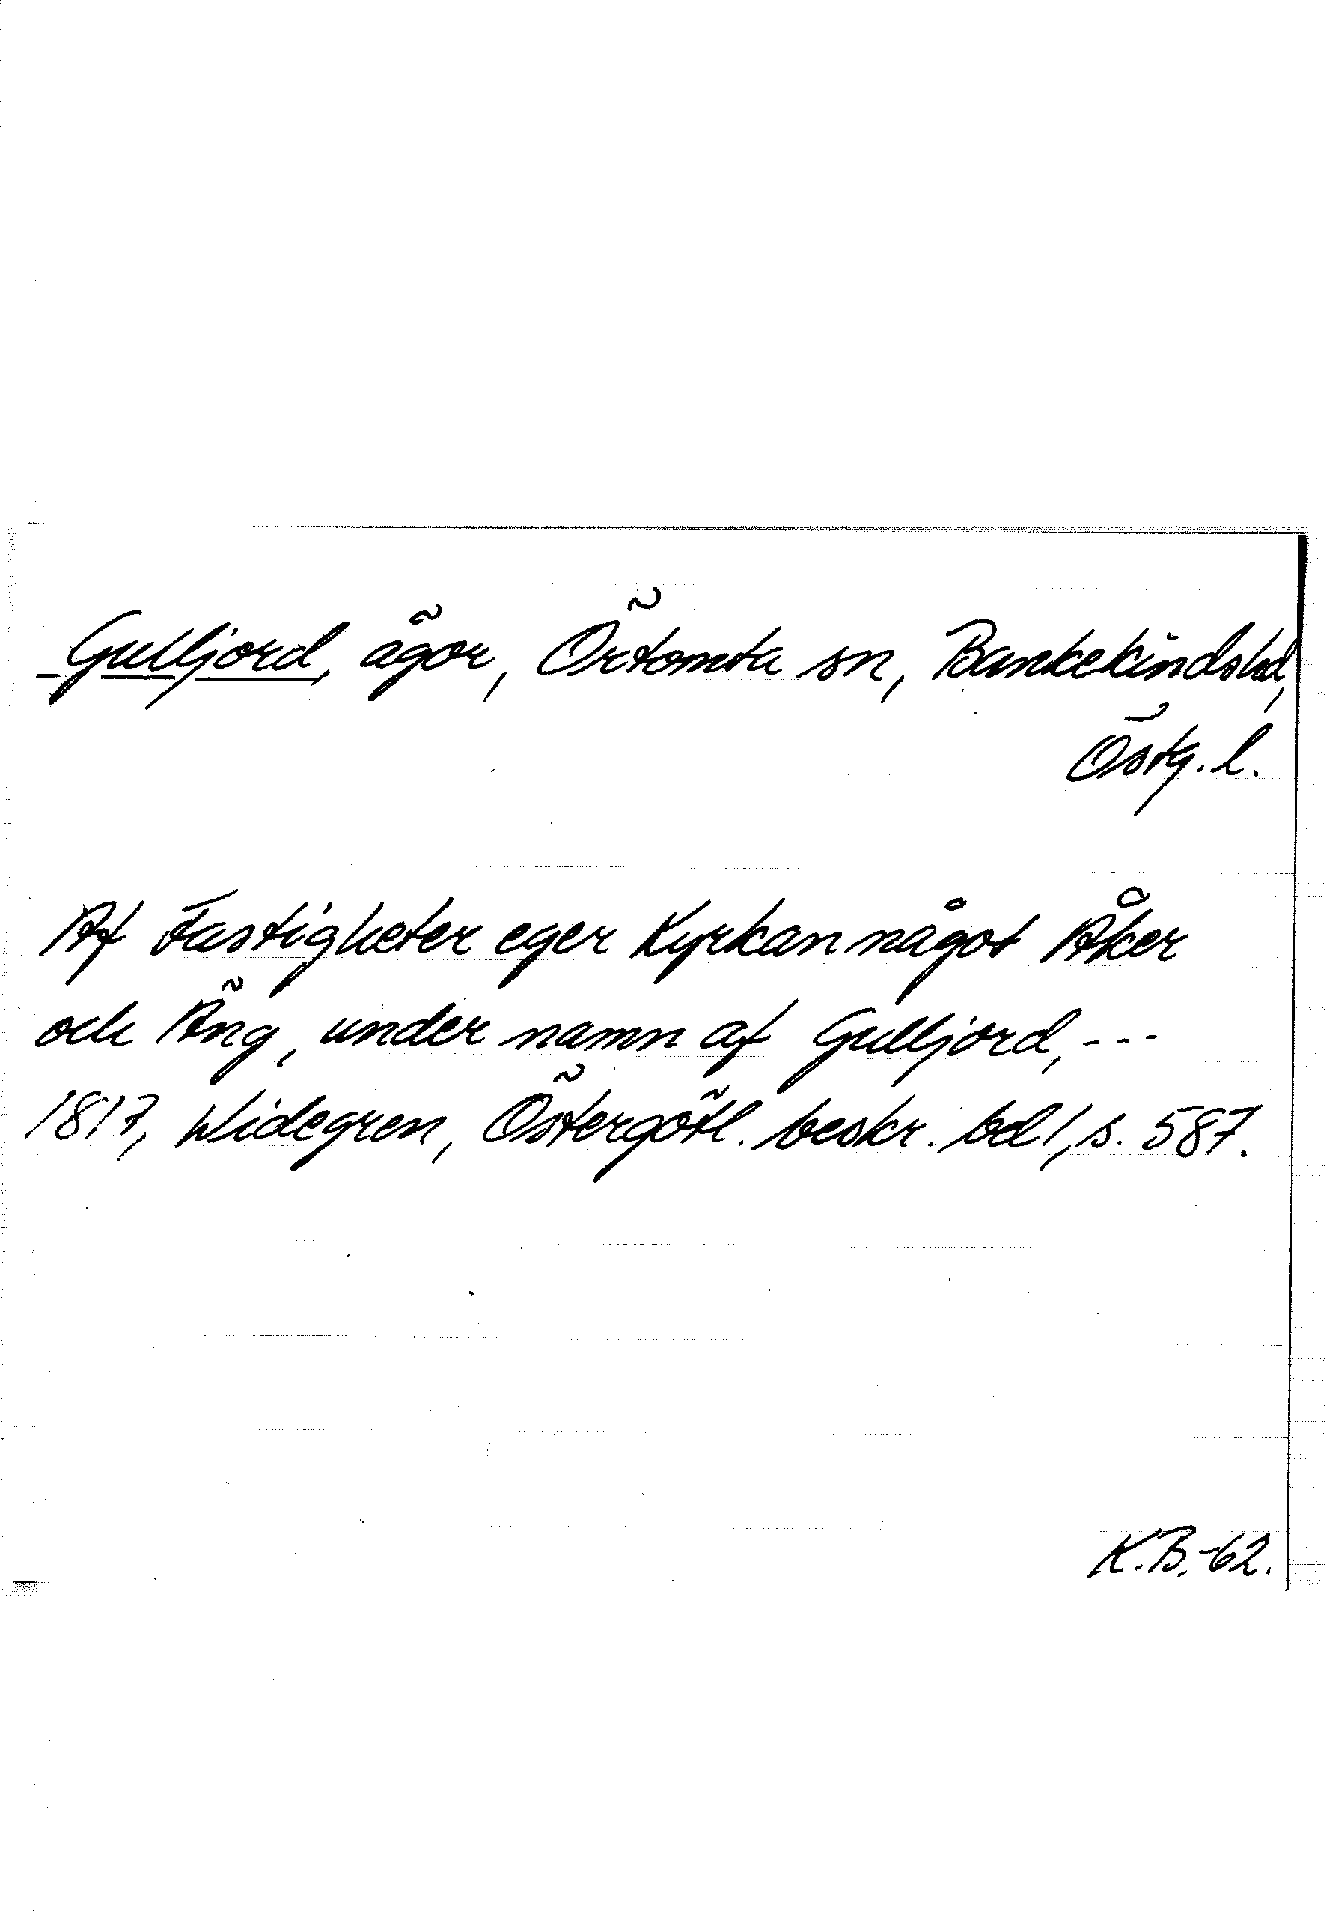 Gulljord, ägor, Örtomta sn, Bankekinds hd,
Östg. l.
Af Fastigheter eger Kyrkan något Åker
och Äng, under namn af Gulljord, ---
1817, Widegren, Östergötl. beskr. bd 1, s. 587.
K.B.-62.